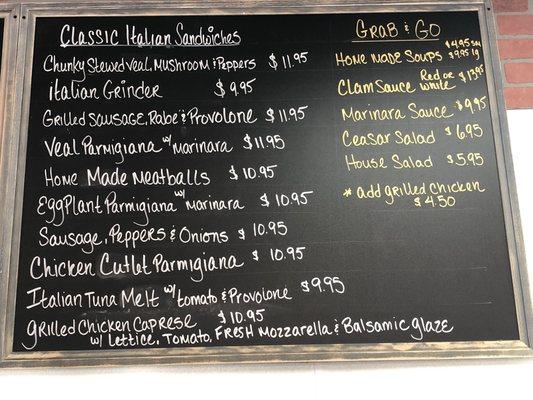 Classic Italian Sandwiches
Chunky Stewed Veal, Mushroom & Peppers $11.95
Italian Grinder $9.95
Grilled Sausage, Rabe & Provolone $11.95
Veal Parmigiana w/ marinara $11.95
Home Made Meatballs $10.95
EggPlant Parmigiana w/ marinara $10.95
Sausage, Peppers & Onions $10.95
Chicken Cutlet Parmigiana $10.95
Italian Tuna Melt w/ tomato & Provolone $9.95
Grilled Chicken Caprese $10.95
w/ Lettice, Tomato, Fresh Mozzarella & Balsamic glaze
Grab & Go
Home Made Soups $4.95 sm
$9.95 lg
Clam Sauce Red or White $13.95
Marinara Sauce $9.95
Ceasar Salad $6.95
House Salad $5.95
* add grilled Chicken
$4.50